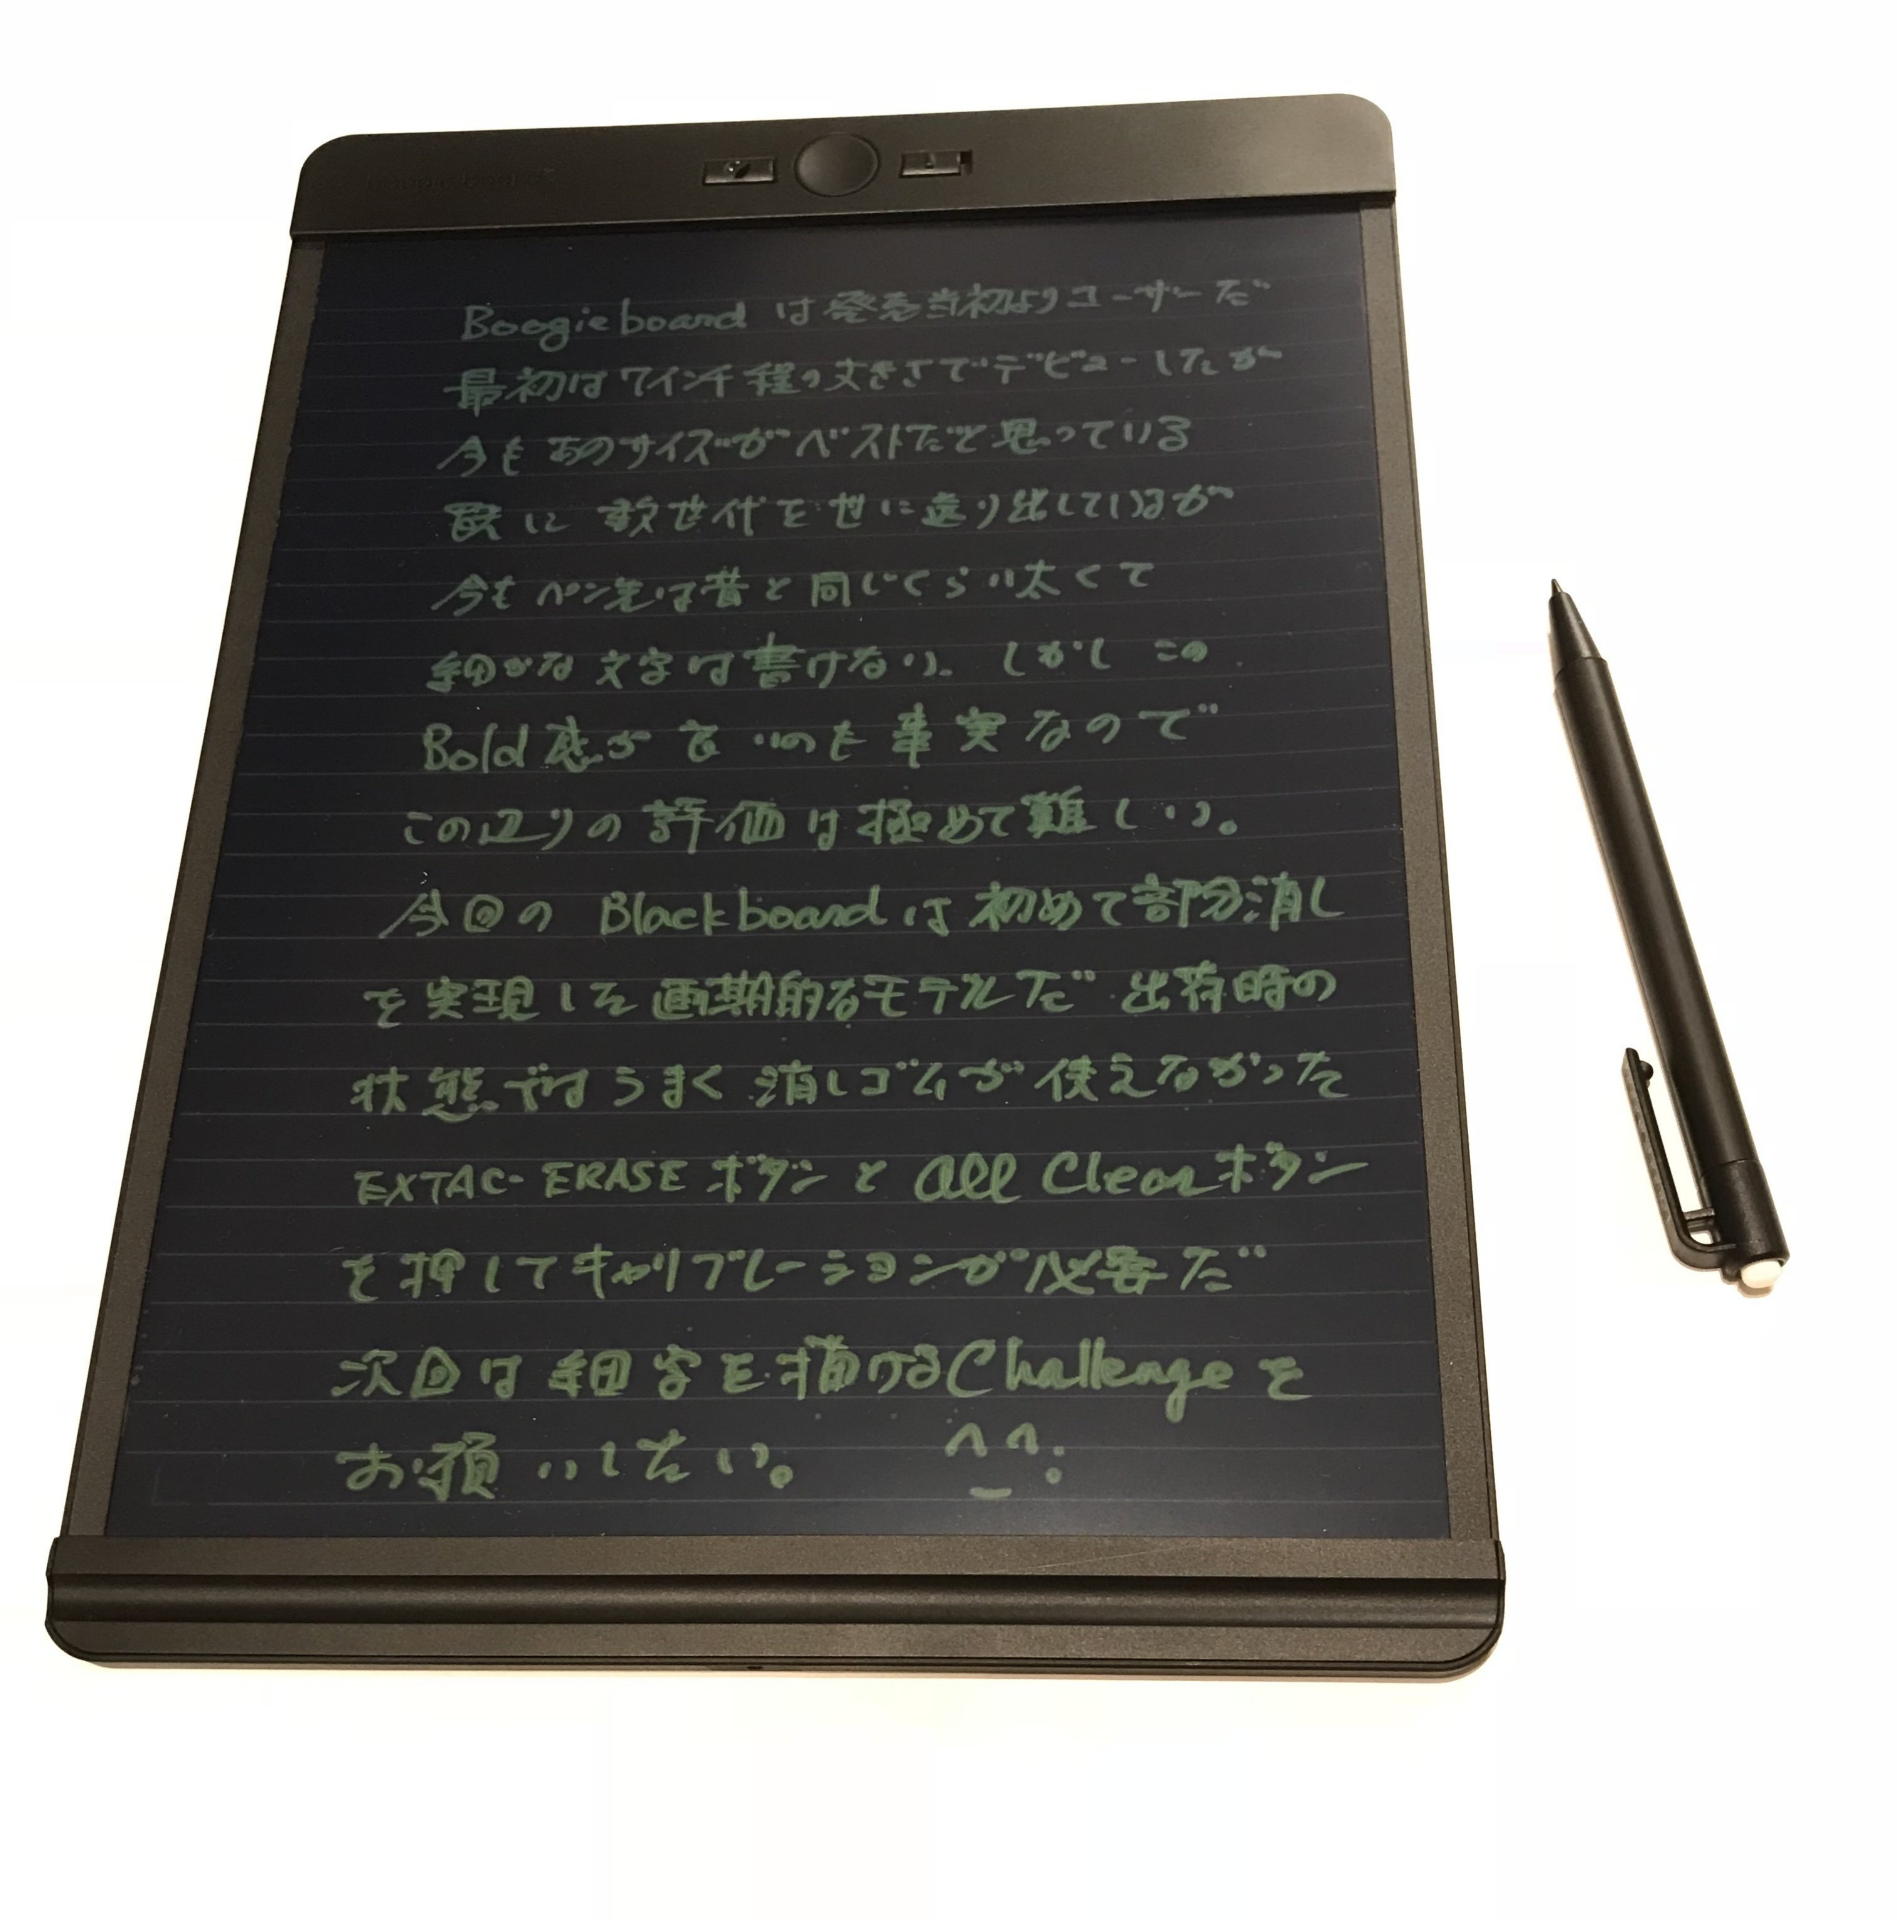 Boogie board は発売当初よりユーザーだ
最初は7インチ程の大きさでデビューしたが
今もあのサイズがベストだと思っている
既に数世代を世に送り出しているが
今もペン先は昔と同じくらい太くて
細かな文字は書けない。しかしこの
Bold感が良いのも事実なので
この辺りの評価は極めて難しい。
今回の Blackboard は初めて部分消し
を実現した画期的なモデルだ 出荷時の
状態ではうまく消しゴムが使えなかった
EXTAC-ERASE ボタンと All Clearボタン
を押してキャリブレーションが必要だ
次回は細字を描けるChallengeを
お願いしたい。 ^_^;